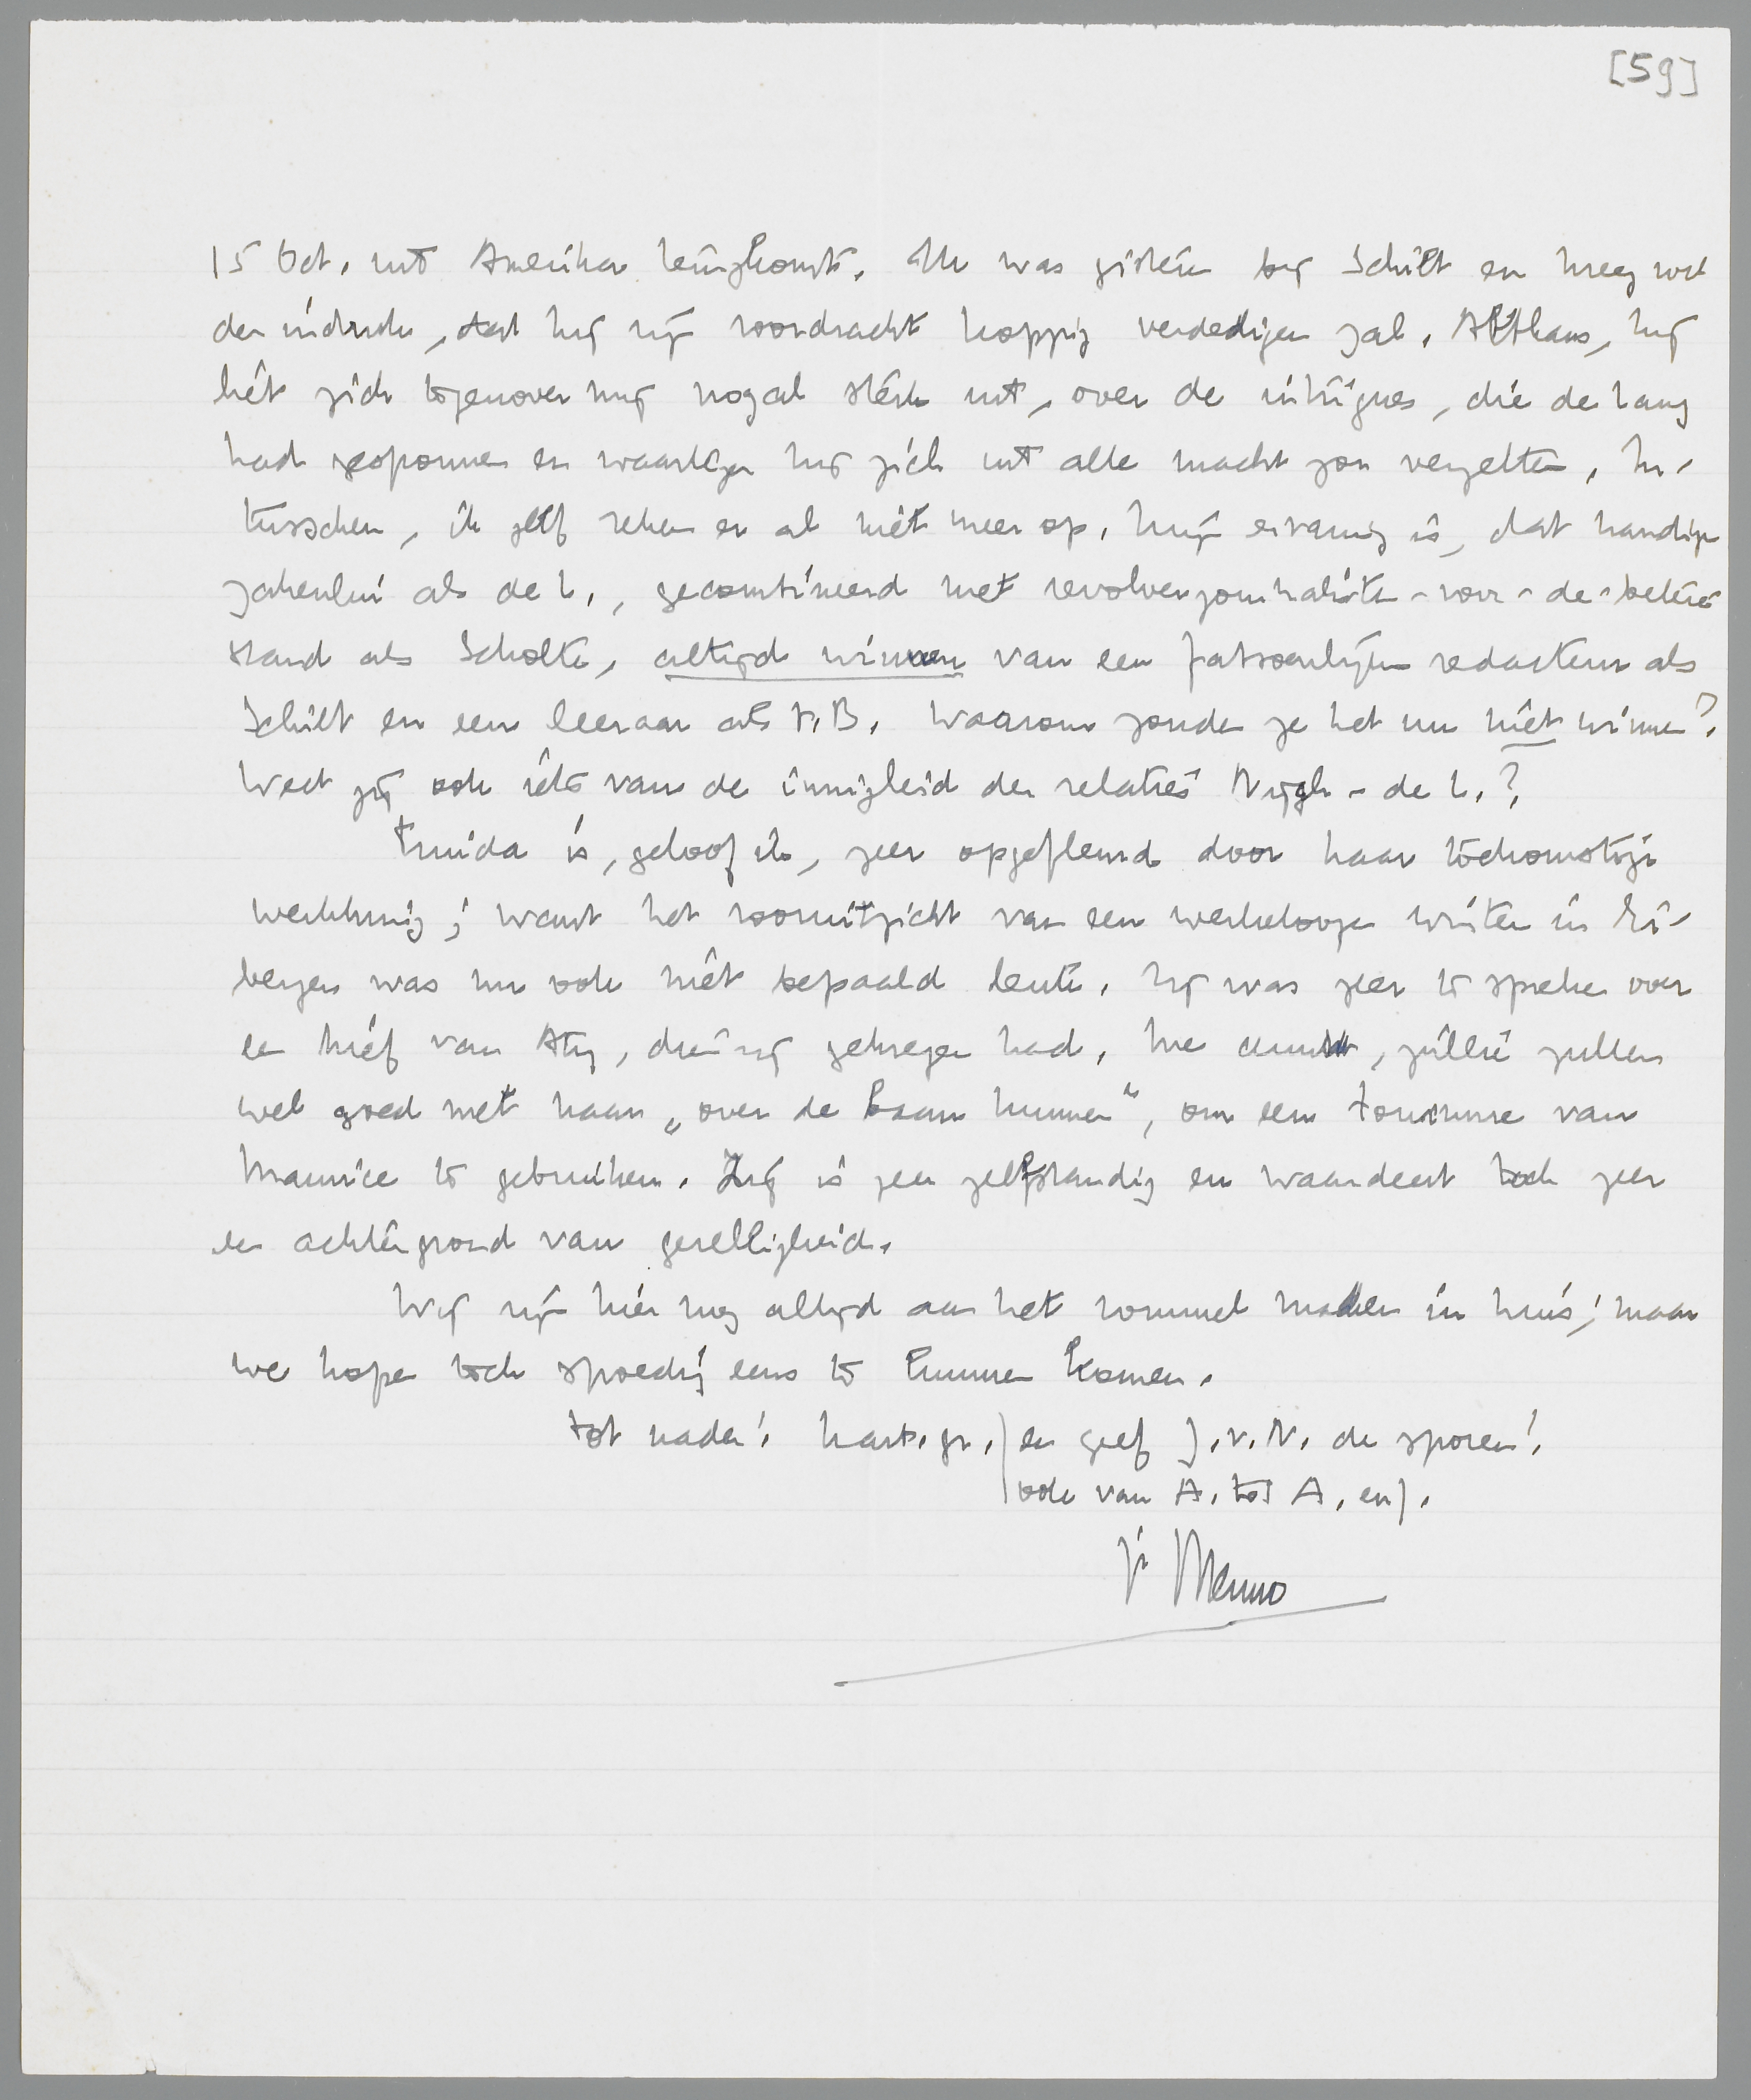 [59]
15 Oct. uit Amerika terugkomt. Ik was gisteren bij Schilt en kreeg wel
den indruk, dat hij zijn voordracht koppig verdedigen zal. Althans, hij
liet zich tegenover mij nogal sterk uit, over de intrigues, die de Lang
had gesponnen en waartegen hij zich uit alle macht zou verzetten. In-
tusschen, ik zelf reken er al niet meer op. Mijn ervaring is, dat handige
zakenlui als de L., gecombineerd met revolverjournalisten-voor-de-beteren
stand als Scholte, altijd winnen van een fatsoenlijken redacteur als
Schilt en een leeraar als t.B. Waarom zouden ze het nu niet winnen?
Weet jij ook iets van de innigheid der relaties Nijgh - de L.?
Truida is, geloof ik, zeer opgefleurd door haar toekomstige
werkkring; want het vooruitzicht van een werkeloozen winter in Ei-
bergen was nu ook niet bepaald leute. Zij was zeer te spreken over
een brief van Atie, dien zij gekregen had. Me dunkt, jullie zullen
wel goed met haar „over de baan kunnen", om een tournure van
Maurice te gebruiken. Zij is zeer zelfstandig en waardeert toch zeer
een achtergrond van gezelligheid.
Wij zijn hier nog altijd aan het rommel maken in huis; maar
we hopen toch spoedig eens te kunnen komen.
tot nader! hart. gr. en geef J.v.N. de sporen!
ook van A. tot A. en J.
je Menno